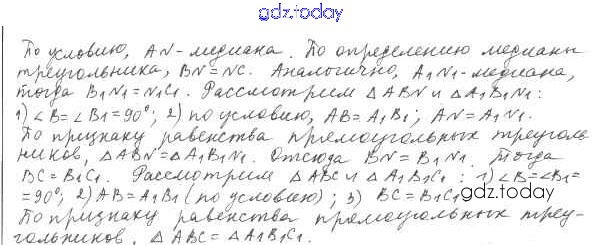 gdz.today
По условию, AN - медиана. По определению медианы
треугольника, BN = NC. Аналогично, A₁N₁ - медиана,
тогда B₁N₁ = N₁C₁. Рассмотрим △ABN и △A₁B₁N₁:
1) ∠B = ∠B₁ = 90°; 2) по условию, AB = A₁B₁; AN = A₁N₁.
По признаку равенства прямоугольных треуголь
ников, △ABN = △A₁B₁N₁. Отсюда BN = B₁N₁. Тогда
BC = B₁C₁. Рассмотрим △ABC и △A₁B₁C₁: 1) ∠B = ∠B₁ =
= 90°; 2) AB = A₁B₁ (по условию); 3) BC = B₁C₁
gdz.today
По признаку равенства прямоугольных треу-
гольников, △ABC = △A₁B₁C₁.